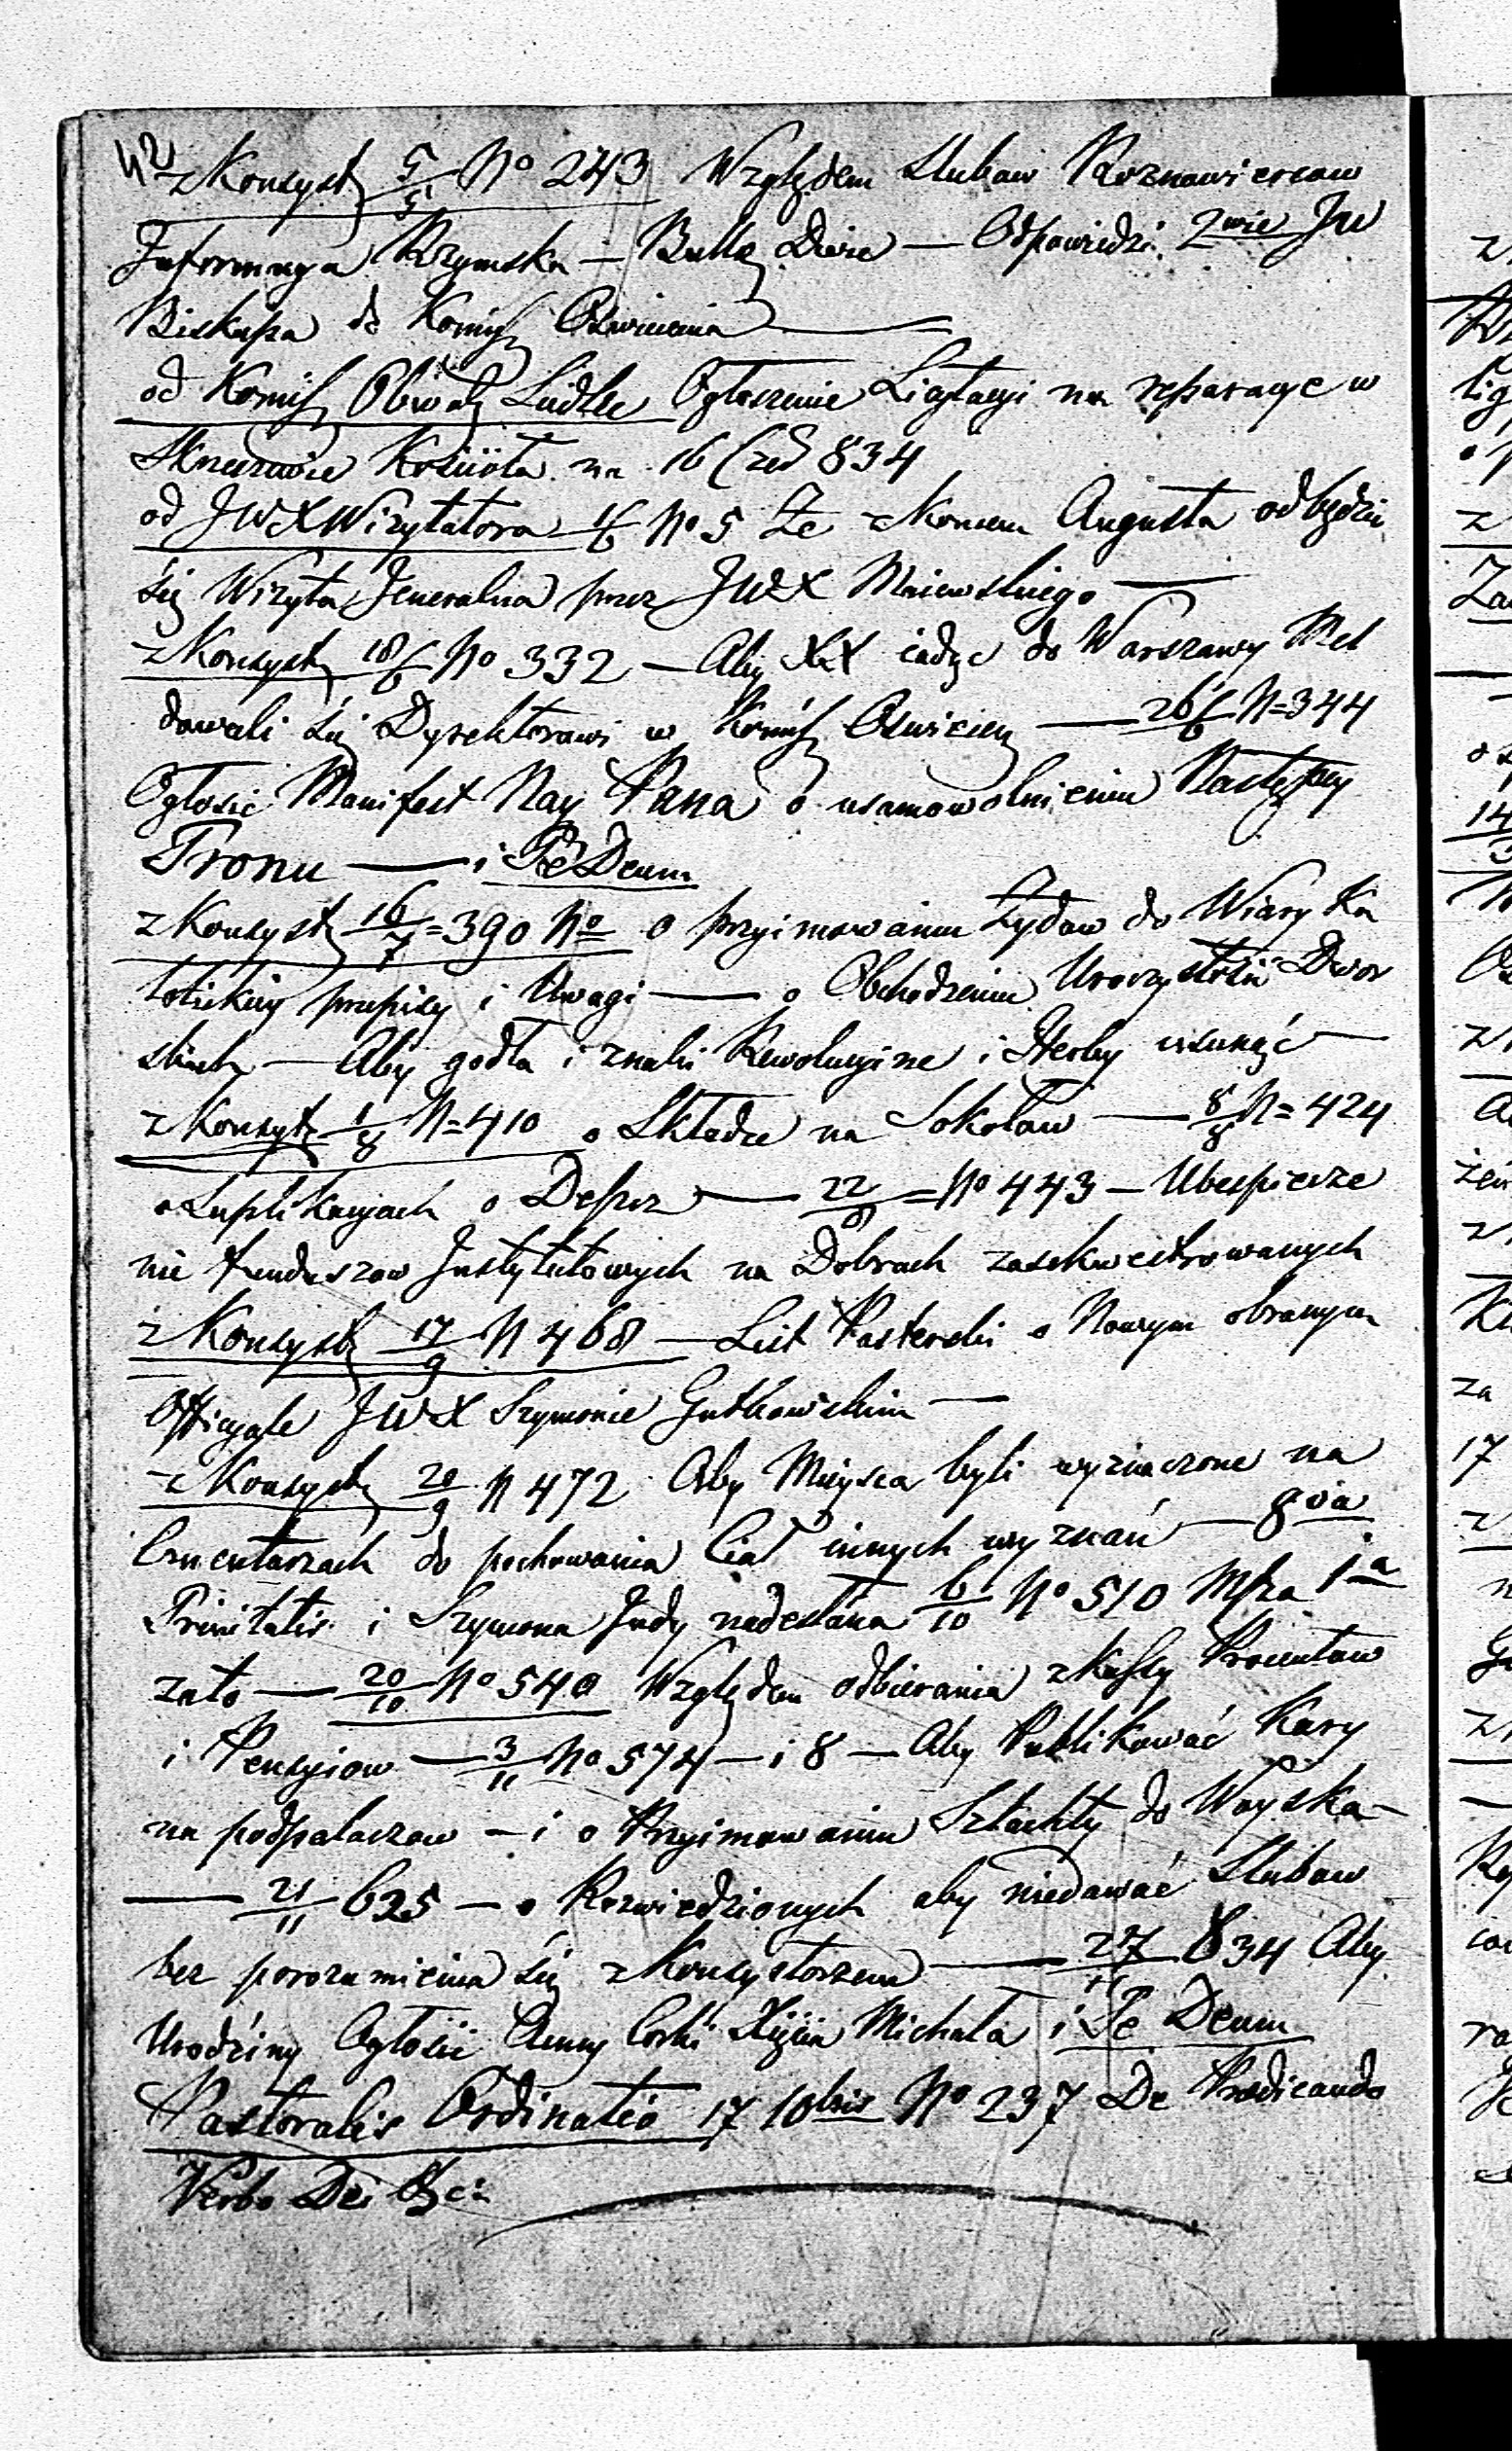 42
z Konsyst 5/5 No 243 Względem Slubow Roznowiercow
Informacya Rzymska — Bulle Dwie — Odpowiedzi 2wie JW
Biskupa do Komiss Oswiecenia
od Komiss Obwod Siedlec Ogłoszenie Licytacyi na reparacye w
Kościoła na 16 Czer 834
od JWX Wizytatora 1/6 No 5 Że z koncem Augusta odbędzie
się Wizyta Jeneralna przez JWX Maiewskiego
z Konsyst 18/6 No 332 — Aby XX iadąc do Warszawy Mel
dowali się Dyrektorowi w Komiss Oswiecen — 26/6 N=344
Ogłosić Manifest Nay Pana o usamowolnieniu Następcy
Tronu — i Te Deum
z Konsyst 16/7 = 390 No o przyimowaniu Żydow do Wiary Ka
tolickiey przepisy i Uwagi — o Obchodzeniu Uroczystości Dwor
skich — Aby godła i znaki Rewolucyine i Herby usunąć —
z Konsyst 1/8 N=410 o Składce na Sokołow — 8/8 N=424
o Suplikacyach o Deszcz — 22/8 = No 443 — Ubespiecze
nie funduszow Instytutowych na Dobrach zasekwestrowanych
z Konsyst 17/9 N 468 — List Pasterski o Nowym obranym
Officyale JWX Szymonie Gutkowskim —
z Konsyst 20/9 N 472 Aby Mieysca byli wyznaczone na
Cmentarzach do pochowania Ciał innych wyznań — 8va
Trinitatis i Szymona Judy nadesłana 6/10 No 510 Msza 1a
zato — 20/10 No 540 Względem odbierania z Kassy Procentow
i Pensyiow — 3/11 No 574 — i 8 — Aby Publikować Kary
na podpalaczow — i o Przyimowaniu Szlachty do Woyska —
— 21/11 625 — o Rozwiedzionych aby niedawać Slubow
bez porozumienia się z Konsystorzem — 27/11 834 Aby
Urodziny Ogłosić Anny Corki Xięcia Michała i Te Deum
Pastoralis Ordinatio 17 10bris No 237 De Praedicando
Verbo Dei